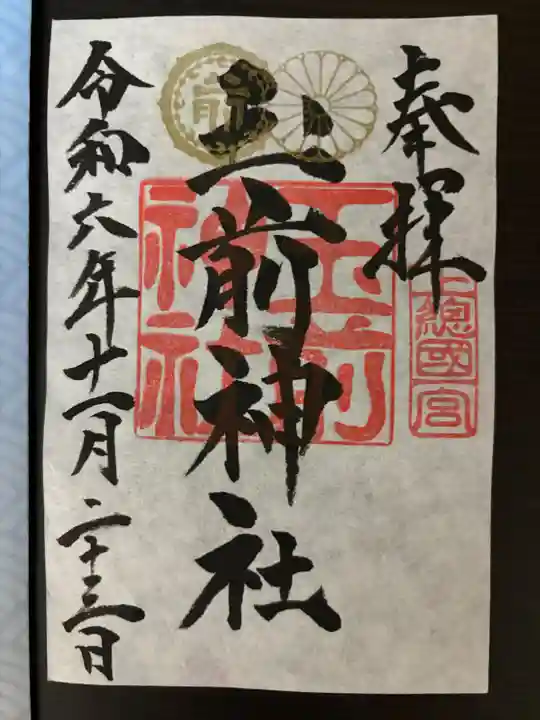 奉拝
上総國一宮
玉前神社
玉前神社
令和六年十一月二十三日